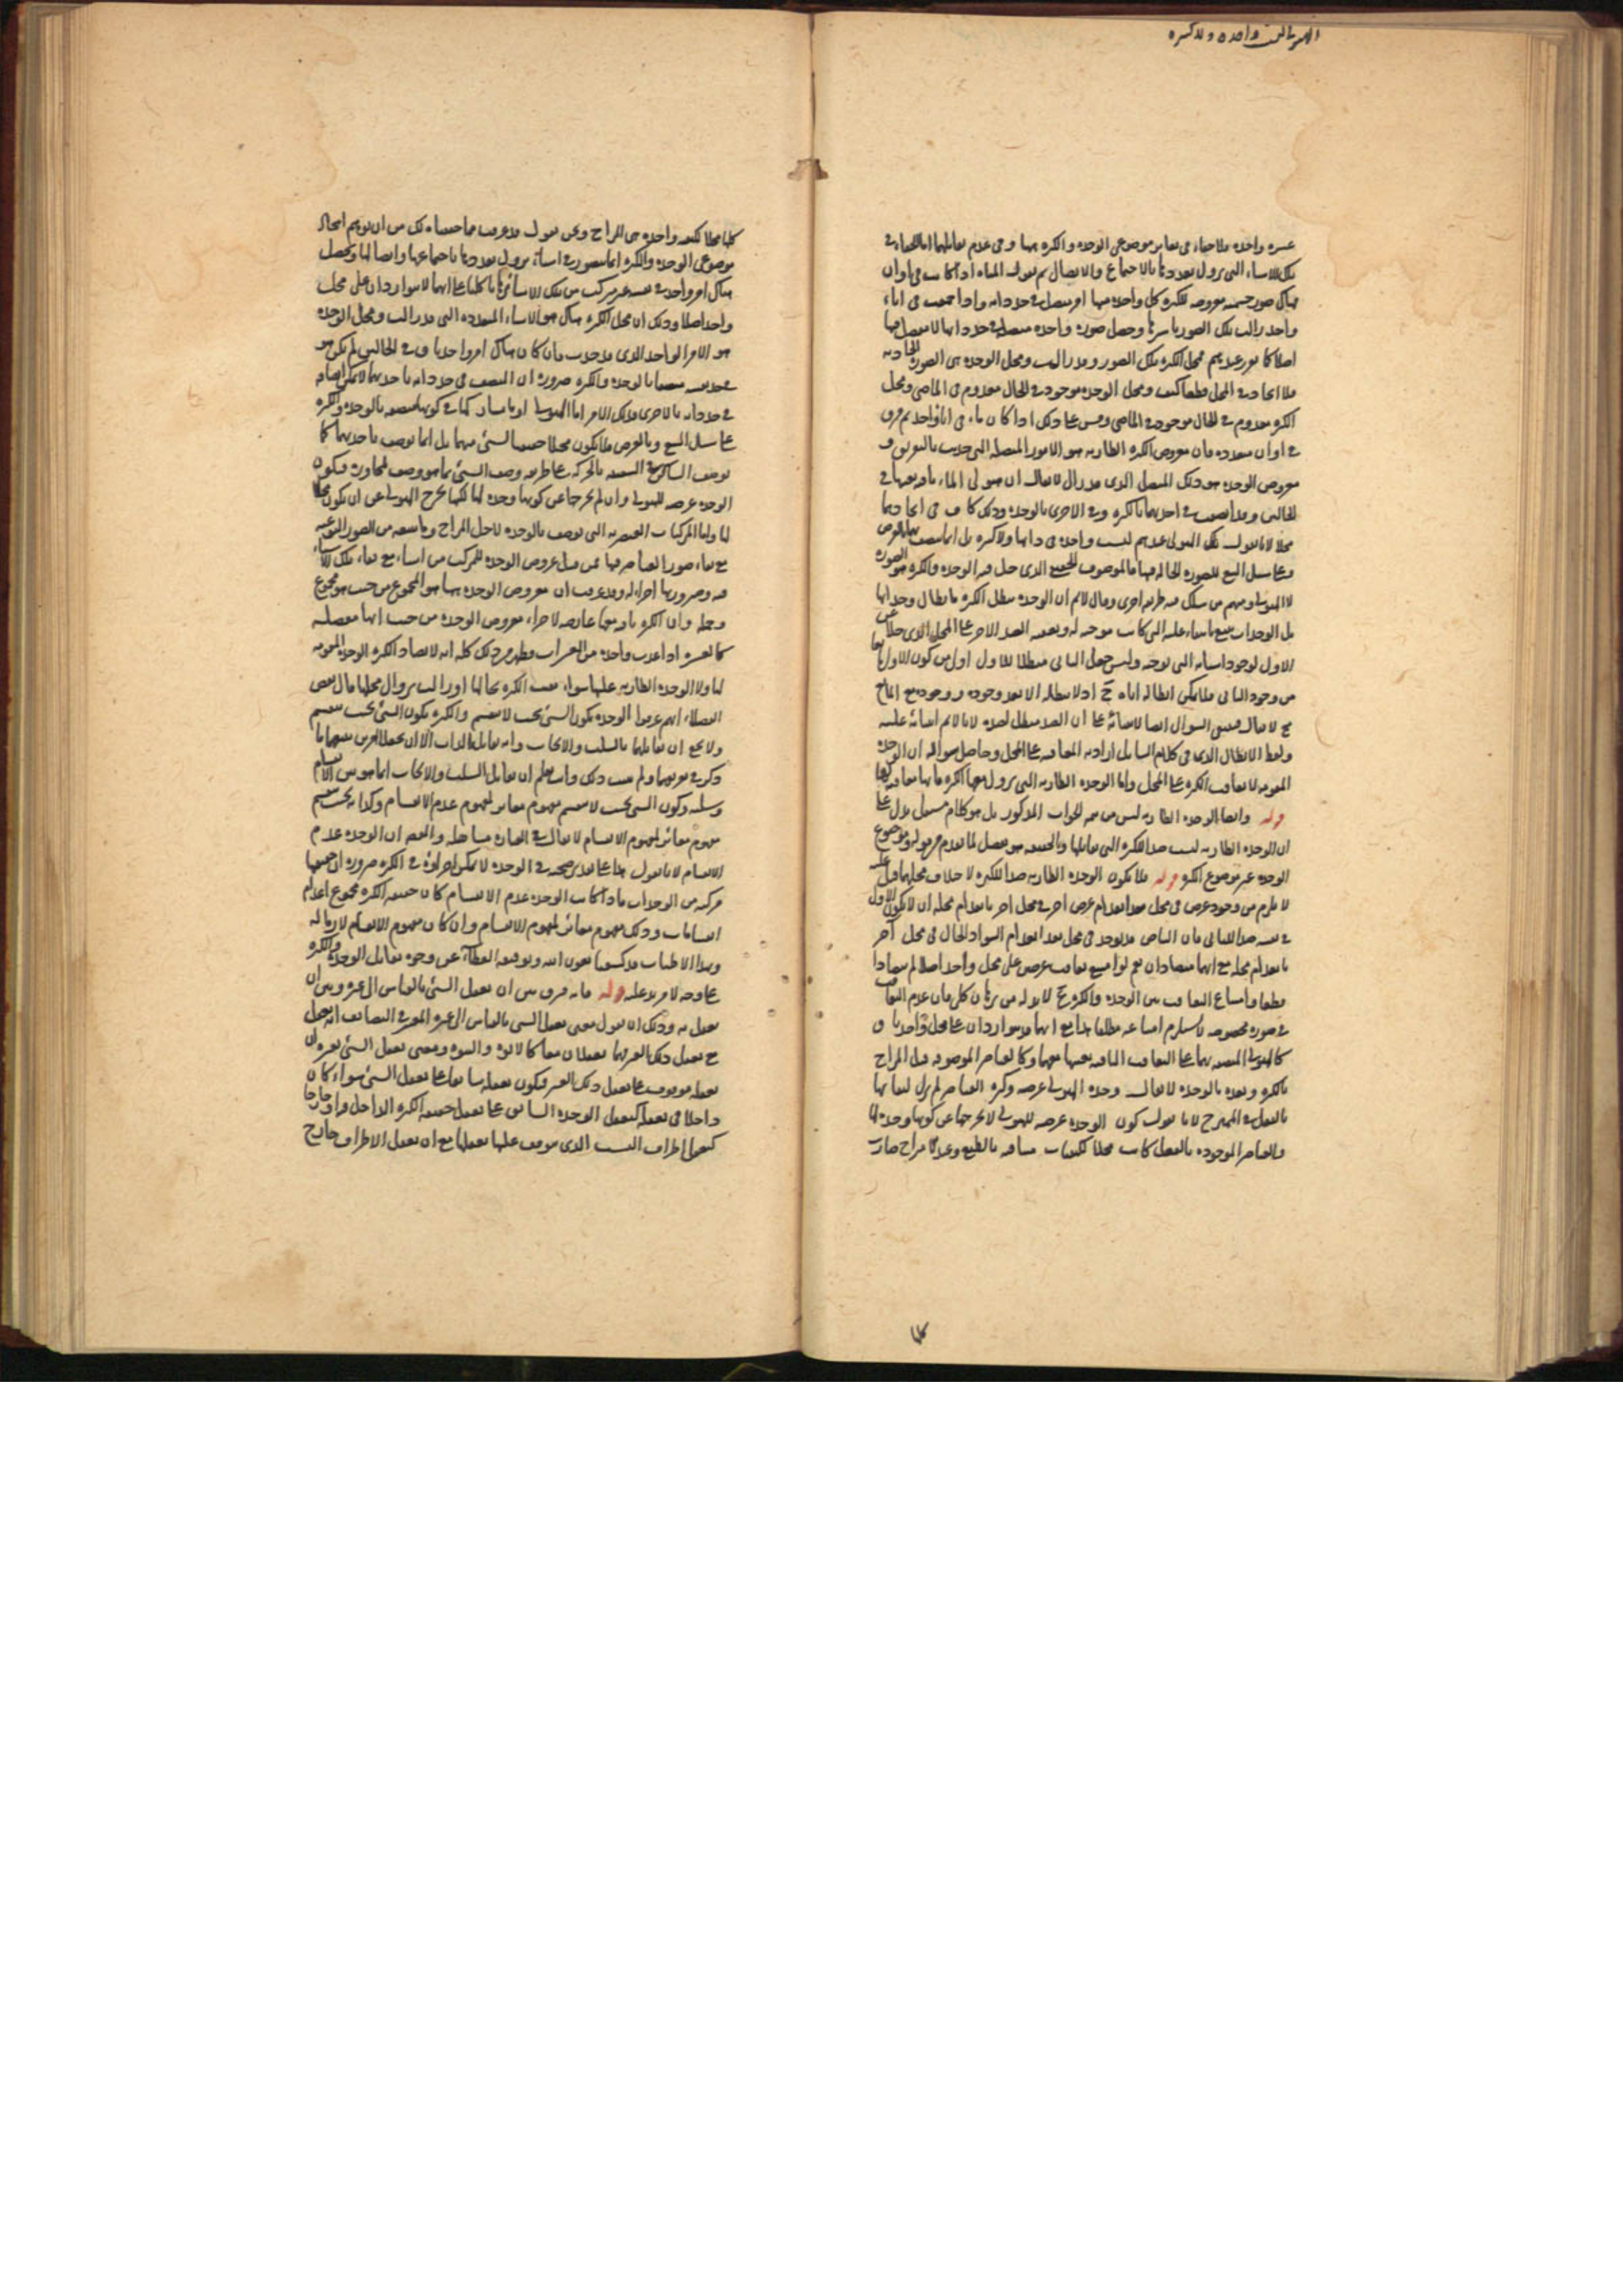 واحدة وكثيرة
عشرة واحدة فلا خفاء في تغاير موضوعي الوحدة والكثرة فيها وفي عدم تقابلهما انما الخفاء في
تلك الاشياء التي يزول تعددها بالاجتماع والاتصال ثم نقول المياه اذا كانت في اوان
هناك صور جسمية معروضة للكثرة كل واحدة منها امر متصل في حد ذاته واذا جمعت في اناء
واحد زالت تلك الصور باسرها وحصل صورة واحدة متصلة في حد ذاتها لا مفصل فيها
اصلا كما تقرر عندهم فمحل الكثرة تلك الصور وقد زالت ومحل الوحدة هي الصورة الحادثة
فلا اتحاد في المحل قطعا كيف ومحل الوحدة موجود في الحال معدوم في الماضي ومحل
الكثرة معدوم في الحال موجود في الماضي وقس على ذلك اذا كان ماء في اناء واحد ثم فرق
في اوان متعددة فان معروض الكثرة الطارية هو الامور المنفصلة التي حدثت بالتفريق و
معروض الوحدة هو ذلك المتصل الذي قد زال لا يقال ان هيولى الماء باقية بعينها في
الحالين وقد اتصفت في احديهما بالكثرة وفي الاخرى بالوحدة وذلك كاف في اتحادهما
محلا لانا نقول تلك الهيولى عندهم ليست واحدة في ذاتها ولا كثيرة بل انما تتصف بهما بالعرض
وعلى سبيل التبع للصورة الحالة فيها فالموصوف الحقيقي الذي حل فيه الوحدة والكثرة هو الصورة
لا الهيولى ومنهم من سلك فيه طريقة اخرى وقال لا نم ان الوحدة تبطل الكثرة بابطال وحداتها
بل الوحدات
الاول لوجود اسبابه التي توجبه وليس جعل الثاني مبطلا للاول اولى من كون الاول مانعا
من وجود الثاني فلا يمكن ابطاله اياه ح اذ لا يبطله الا بعد وجوده ووجوده مع المانع
مح لا يقال فيبقى السؤال
ولفظ الابطال الذي في كلام السائل اراد به المعاقبة على المحل وحاصل سؤاله ان الوحدة
المقومة لا تعاقب الكثرة على المحل واما الوحدة الطارية التي يزول معها الكثرة فانها تعاقبها
قوله وايضا الوحدة الطارية ليس من تتمة الجواب المذكور بل هو كلام مستقل يدل على
ان الوحدة الطارية ليست ضد الكثرة التي تقابلها وبالحقيقة هو تفصيل لما تقدم من قوله وموضوع
الوحدة غير موضوع الكثرة قوله فلا يكون الوحدة الطارية ضدا للكثرة لاختلاف محليهما قيل عليه
لا يلزم من وجود عرض في محل بعد انعدام عرض آخر في محل آخر بانعدام محله ان لا يكون الاول
في نفسه ضد الثاني فان البياض قد يوجد في محل بعد انعدام السواد الحال في محل آخر
بانعدام محله مع انهما متضادان نعم لو امتنع تعاقب عرضين على محل واحد اصلا لم يتضادا
قطعا وامتناع التعاقب بين الوحدة والكثرة ح لا بد له من برهان كلي فان عدم التعاقب
في صورة مخصوصة لا يستلزم امتناعه مطلقا هذا مع انهما قد يتواردان على محل واحد باق
كالهيولى المتصفة بهما على التعاقب الباقية بعينها معهما وكالعناصر الموصوفة قبل المزاج
بالكثرة وبعده بالوحدة لا يقال وحدة الهيولى عرضية وكثرة العناصر لم تزل لبقائها
بالفعل في الممتزج لانا نقول كون الوحدة عرضية للهيولى لا يخرجها عن كونها وحدة لها
والعناصر الموجودة بالفعل كانت محلا لكيفيات متنافية بالطبع وعند المزاج صارت
كلها
كلها محلا لكيفية واحدة هي المزاج ونحن نقول قد عرفت مما حققناه لك من ان توهم اتحاد
موضوعي الوحدة والكثرة انما يتصور في اشياء يزول تعددها باجتماعها واتصالها ويحصل
هناك امر واحد في نفسه غير مركب من تلك الاشياء باقيا كلها على انهما لا يتواردان على محل
واحد اصلا وذلك لان محل الكثرة هناك هو الاشياء المتعددة التي قد زالت ومحل الوحدة
هو الامر الواحد الذي قد حدث فان كان هناك امر واحد باق في الحالين لم يكن هو
في حد نفسه متصفا بالوحدة والكثرة ضرورة ان المتصف في حد ذاته باحديهما لا يمكن اتصافه
في حد ذاته بالاخرى فذلك الامر اما الهيولى او ما يشاركها في كونها متصفة بالوحدة والكثرة
على سبيل التبع وبالعرض فلا يكون محلا حقيقيا لشيء منهما بل انما يوصف باحديهما كما
يوصف الساكن في السفينة بالحركة على طريقة وصف الشيء بما هو وصف لمجاوره فكون
الوحدة عرضية للهيولى وان لم يخرجها عن كونها وحدة لها لكنها تخرج الهيولى عن ان يكون محلا
لها واما المركبات العنصرية التي توصف بالوحدة لاجل المزاج وما يتبعه من الصور النوعية
مع بقاء صور العناصر فيها فمن قبيل عروض الوحدة للمركب من اشياء مع بقاء تلك الاشياء
فيه وصيرورتها اجزاء له وقد عرفت ان معروض الوحدة ههنا هو المجموع من حيث هو مجموع
وجملة وان الكثرة باقية معها عارضة لاجزاء معروض الوحدة من حيث انها مفصلة
كالعشرة اذا عدت واحدة من العشرات فظهر من ذلك كله انه لا يضاد الكثرة الوحدة المقومة
لها ولا الوحدة الطارية عليها سواء بقيت الكثرة بحالها او زالت بزوال محلها قال بعض
الفضلاء انهم عرفوا الوحدة بكون الشيء بحيث لا ينقسم والكثرة بكون الشيء بحيث ينقسم
ولا يخفى ان تقابلهما بالسلب والايجاب وانه تقابل بالذات الا ان يجعل العرض
ذكر في تعريفهما ولم يثبت ذلك وانت تعلم ان تقابل السلب والايجاب انما هو بين الانقسام
وسلبه وكون الشيء بحيث لا ينقسم مفهوم مغاير لمفهوم عدم الانقسام وكذا بحيث ينقسم
مفهوم مغاير لمفهوم الانقسام لا يقال في العبارة مساهلة والمقصود ان الوحدة عدم
الانقسام لانا نقول هذا على تقدير صحته في الوحدة لا يمكن اجراؤه في الكثرة ضرورة ان حقيقتها
مركبة من الوحدات فاذا كانت الوحدة عدم الانقسام كان حقيقة الكثرة مجموع اعدام
انقسامات وذلك مفهوم مغاير لمفهوم الانقسام وان كان مفهوم الانقسام لازما له
وبهذا الاطناب قد كشفنا بعون الله وتوفيقه الغطاء عن وجوه تقابل الوحدة والكثرة
على وجه لا مزيد عليه قوله فانه فرق بين ان يعقل الشيء بالقياس الى غيره وبين ان
يعقل به وذلك ان نقول معنى تعقل الشيء بالقياس الى غيره المعتبر في التضايف انه يعقل
مع تعقل ذلك الغير فهما يعقلان معا كالابوة والبنوة ومعنى تعقل الشيء بغيره ان
تعقله موقوف على تعقل ذلك الغير فيكون تعقله سابقا على تعقل الشيء سواء كان
داخلا في تعقله كتعقل الوحدة السابق على تعقل حقيقة الكثرة الداخل او خارجا
كتعقل اطراف النسب الذي يتوقف عليها تعقلها مع ان تعقل الاطراف خارج